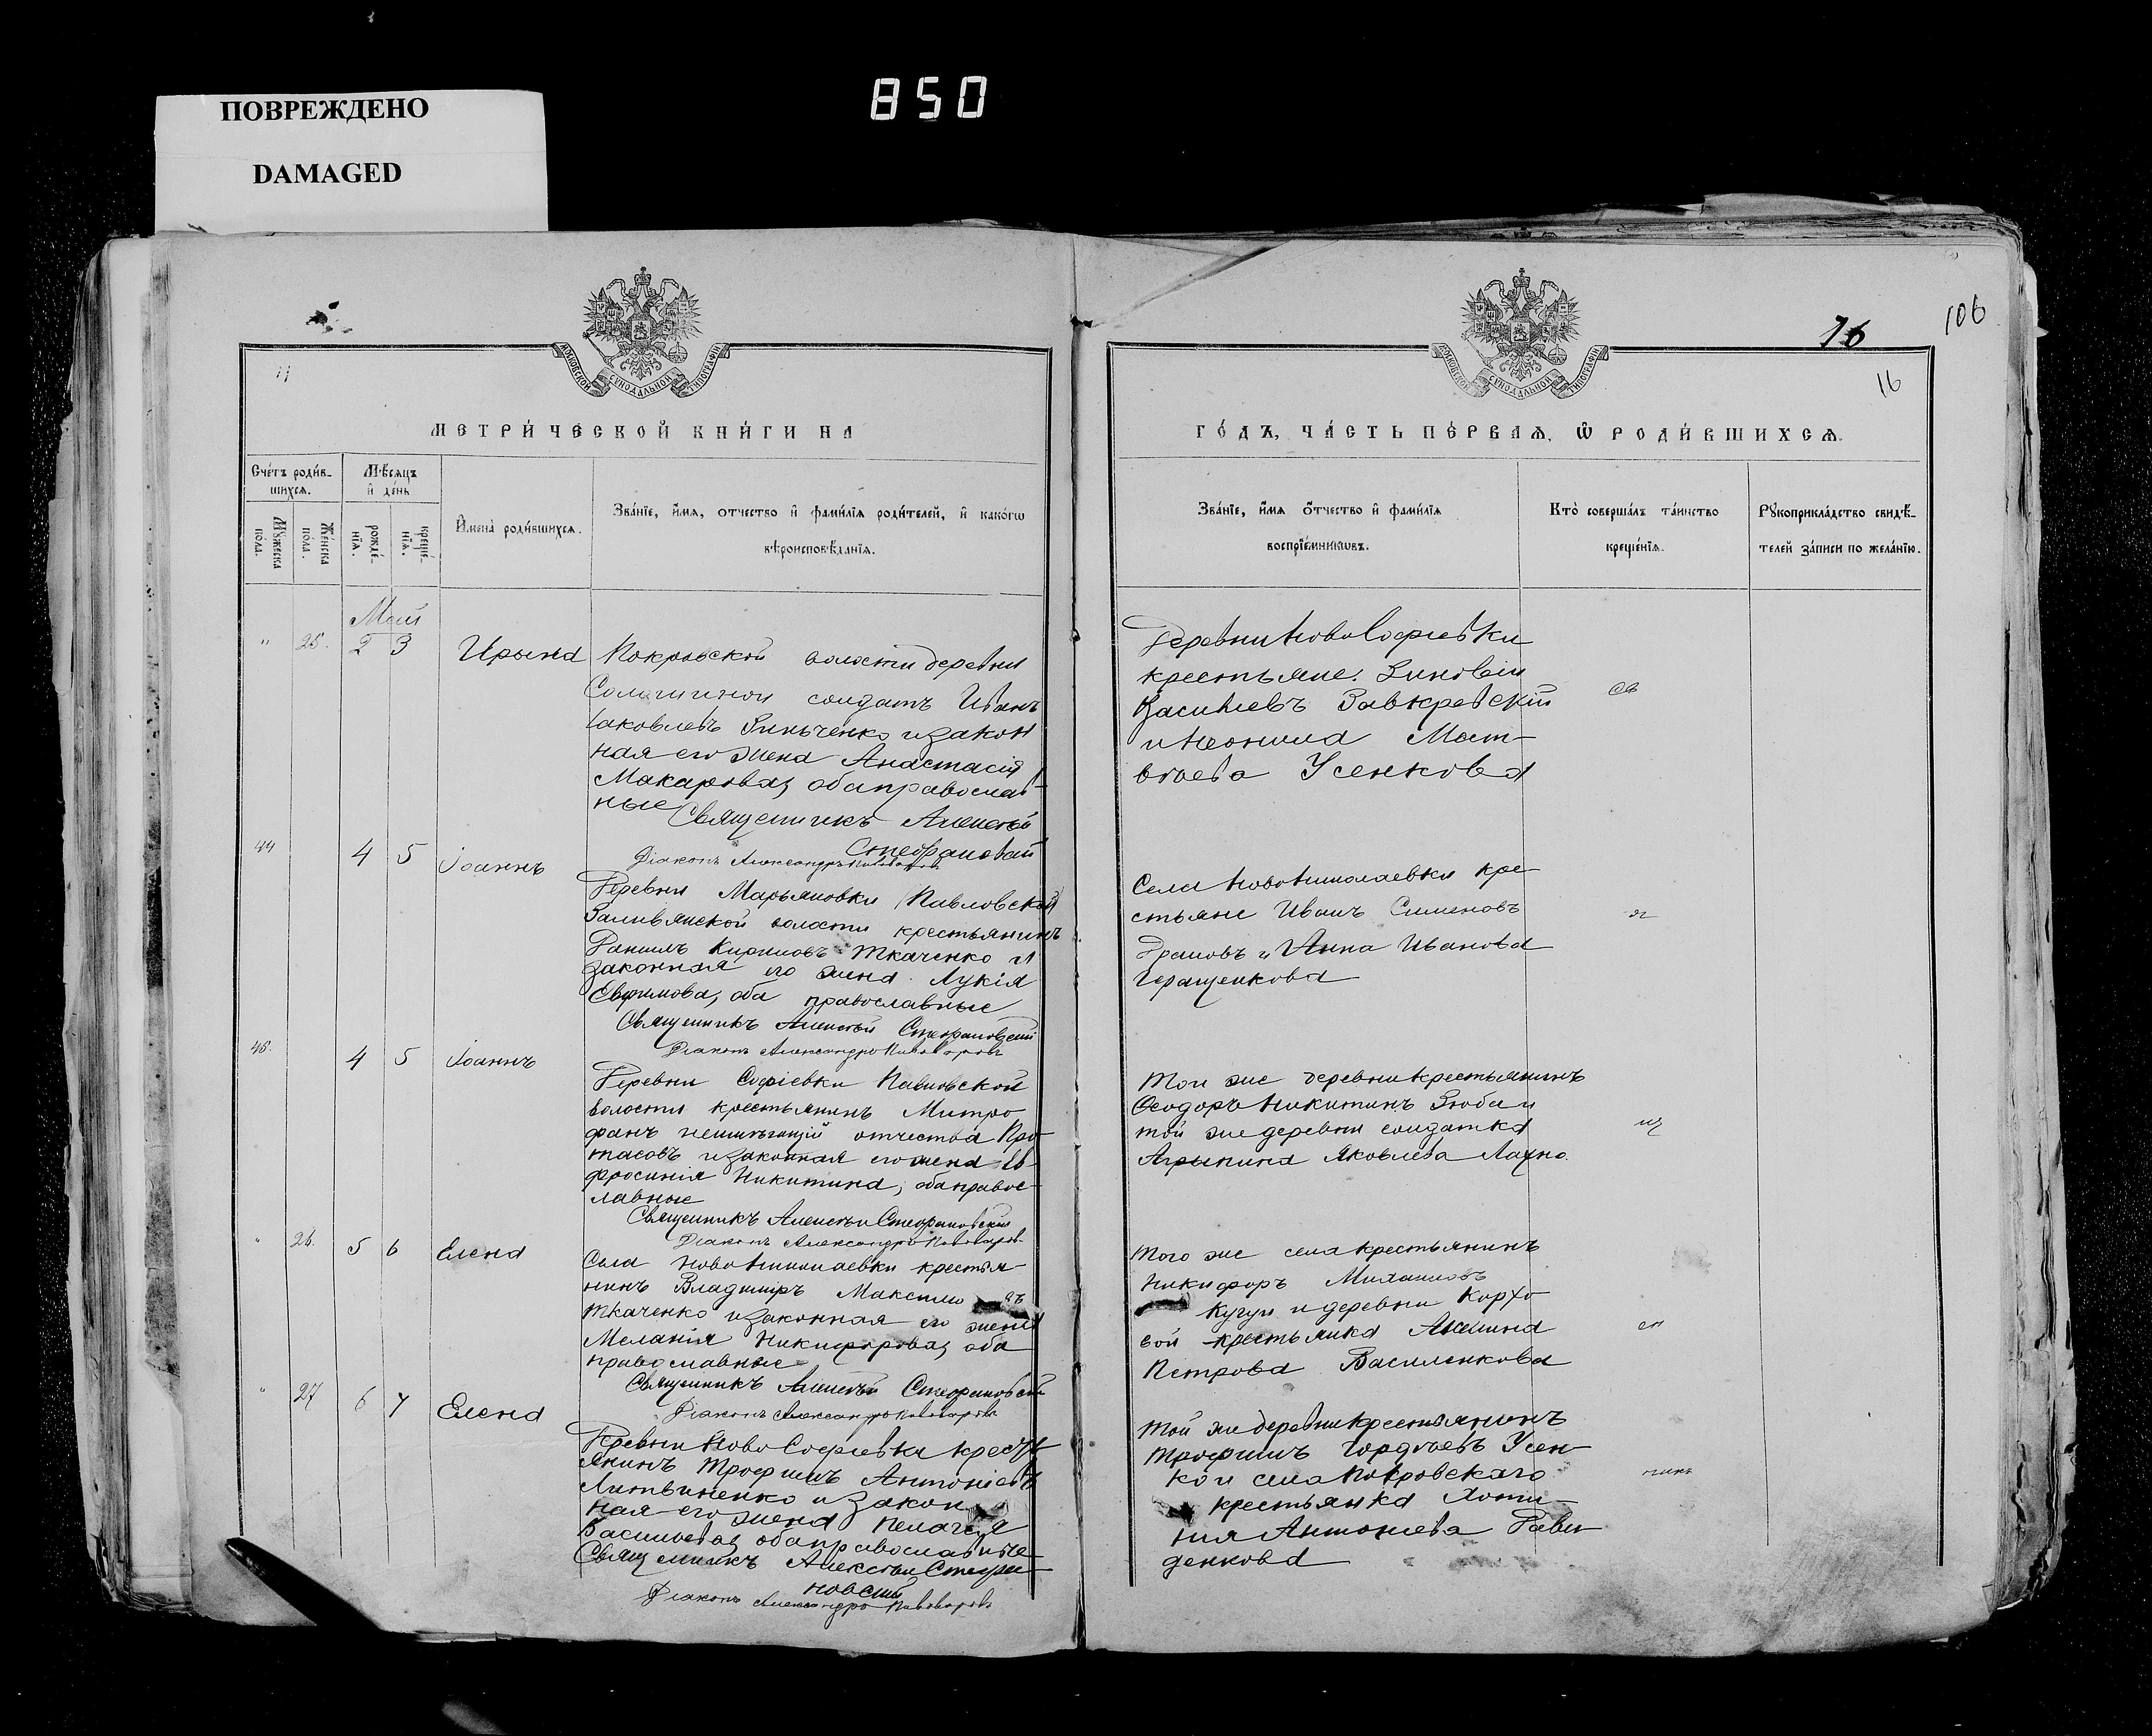 850
ПОВРЕЖДЕНО
DAMAGED
МОСКОВСКОЙ СѴНОДАЛЬНОЙ ТИПОГРАФІИ
МЕТРИ́ЧЕСКОЙ КНИ́ГИ НА
Сче́тъ роди́в-
шихсѧ.
Мѣ́сѧцъ
и҆ де́нь
Мꙋ́жеска
по́ла.
Же́нска
по́ла.
рожде́-
нїѧ.
креще́-
нїѧ.
И҆мена̀ роди́вшихсѧ.
Зва́нїе, и҆́мѧ, ѻ҆́тчество и҆ фами́лїѧ роди́телей, и҆ како́гѡ
вѣроисповѣ́данїѧ.
Май
" 25. 2 3 Ирына
Покровской волости деревни
солдатъ Иванъ
Іаковлевъ Зинченко и закон
ная его жена Анастасія
Макарова, оба православ-
ные
Священникъ Алексѣй
Стефановскій
Діаконъ Александръ Пивоваровъ
44 4 5 Іоаннъ
Деревни Марьяновки Павловской
волости крестьянинъ
Даніилъ Кириловъ Ткаченко и
законная его жена Лукія
Евфимова, оба православные
Священникъ Алексѣй Стефановскій
Діаконъ Александръ Пивоваровъ
45. 4 5 Іоаннъ
Деревни Софіевки Павловской
волости крестьянинъ Митро
фанъ неимѣющій отчества Про
тасовъ и законная его жена Ев
фросинія Никитина, оба правос-
лавные
Священникъ Алексѣй Стефановскій
Діаконъ Александръ Пивоваровъ
" 26. 5 6 Елена
Села Новониколаевки крестья-
нинъ Владиміръ Максимовъ
Ткаченко и законная его жена
Меланія Никифорова, оба
православные
Священникъ Алексѣй Стефановскій
Діаконъ Александръ Пивоваровъ
" 27 6 7 Елена
Деревни Ново Софіевки крестья-
янинъ Трофимъ Антоніевъ
Литвиненко и закон
ная его жена Пелагея
Васильева, оба православные
Священникъ Алексѣй Стефа-
новскій
Діаконъ Александръ Пивоваровъ
106
16
16
МОСКОВСКОЙ СѴНОДАЛЬНОЙ ТИПОГРАФІИ
ГО́ДЪ, ЧА́СТЬ ПЕ́РВАѦ, Ѡ҆ РОДИ́ВШИХСѦ.
Зва́нїе, и҆́мѧ ѻ҆́тчество и҆ фами́лїѧ
воспрїе́мникѡвъ.
Кто̀ соверша́лъ та́инство
креще́нїѧ.
Рꙋкоприкла́дство свидѣ́-
телей за́писи по жела́нїю.
Деревни Ново Софіевки
крестьяне: Зиновій
Васильевъ Завкревскій
и Неонила Мат-
вѣева Усенкова
Села Новониколаевки кре-
стьяне Иванъ Сименовъ
и Анна Иванова
Геращенкова
Той же деревни крестьянинъ
Ѳеодоръ Никитинъ Зюба и
той же деревни солдатка
Агрыпина Яковлева Лахно.
Того же села крестьянинъ
Никифоръ Михаиловъ
Кугул и деревни
вой крестьянка Акилина
Петрова Василенкова
Той же деревни крестьянинъ
Трофимъ Гордѣевъ Усен-
ко и села Покровскаго
крестьянка Хоти-
ния Антониева Дави-
денкова